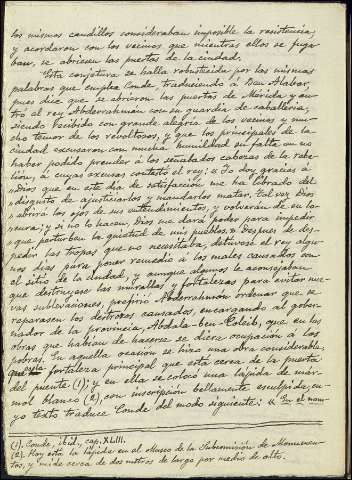 los mismos caudillos consideraban imposible la resistencia,
y acordaron con los vecinos que mientras ellos se fuga-
ban, se abriesen las puertas de la ciudad.
Esta conjetura se halla robustecida por las mismas
palabras que emplea Conde, traduciendo á Ben Alabar,
pues dice que se abrieron las puertas de Mérida y en-
tró el rey Abderrahmán con su guardia de caballería,
siendo recibido con grande alegría de los vecinos y mu-
cho temor de los revoltosos, y que los principales de la
ciudad excusaron con mucha humildad su falta en no
haber podido prender á los señalados cabezas de la rebe-
lión, á cuyas excusas contestó el rey: «Yo doy gracias á
»Dios que en este dia de satisfacción me ha librado del
»disgusto de ajusticiarlos y mandarlos matar. Tal vez Dios
»abrirá los ojos de sus entendimientos, y volverán de su lo-
»cura; y si no lo hacen, Dios me dará poder para impedir
»que perturben la quietud de mis pueblos.» Despues de des-
pedir las tropas que no necesitaba, detúvose el rey algu-
nos dias para poner remedio á los males causados con
el sitio de la ciudad, y aunque algunos le aconsejaban
que destruyese las murallas y fortalezas para evitar nue-
vas sublevaciones, prefirió Abderrahmán ordenar que se
reparasen los destrozos causados, encargando al gober-
nador de la provincia, Abdala ben Coleib, que en las
obras que habian de hacerse se diera ocupación á los
pobres. En aquella ocasion se hizo una obra considerable
en la fortaleza principal que está cerca de la puerta
del puente (1); y en ella se colocó una lápida de már-
mol blanco (2), con inscripción bellamente esculpida, cu-
yo texto traduce Conde del modo siguiente: «En el nom-
(1). Conde, ibid, cap. XLIII.
(2). Hoy está la lápida en el Museo de la Subcomisión de Monumen-
tos, y mide cerca de dos metros de largo por medio de alto.